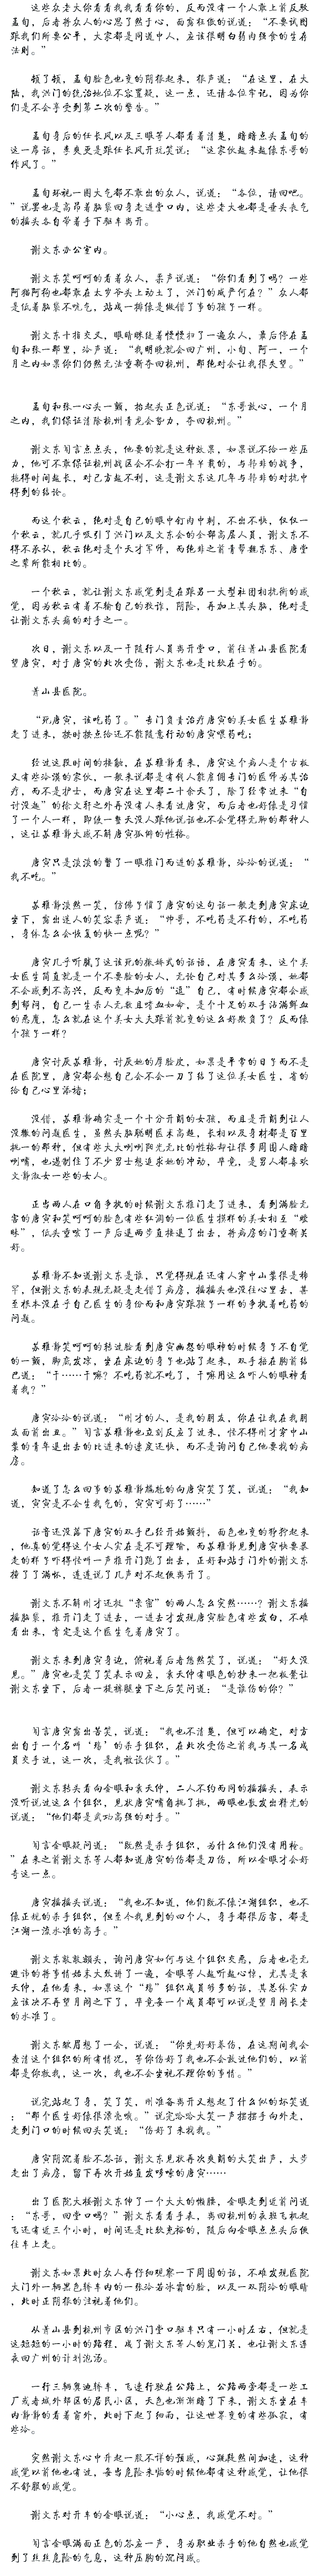 这些老大你看看我我看看你的，反而没有一个人敢上前反驳
孟旬，后者将众人的心思了然于心，面露狂傲的说道：“不要试图
跟我们所要公平，大家都是同道中人，应该很明白弱肉强食的生存
法则。”
顿了顿，孟旬脸色也变的阴狠起来，狠声道：“在这里，在大
陆，我洪门的统治地位不容置疑，这一点，还请各位牢记，因为你
们是不会享受到第二次的警告。”
孟旬身后的任长风以及三眼等人都看着清楚，暗暗点头孟旬的
这一席话，李爽更是跟任长风开玩笑说：“这家伙越来越像东哥的
作风了。”
孟旬环视一圈大气都不敢出的众人，说道：“各位，请回吧。
”说罢也是高昂着脑袋回身走进堂口内，这些老大也都是垂头丧气
的摇头各自带着手下驱车离开。
谢文东办公室内。
谢文东笑呵呵的看着众人，柔声说道：“你们看到了吗？一些
阿猫阿狗也都敢在太岁爷头上动土了，洪门的威严何在？”众人都
是低着脑袋不吭气，站成一排像是做错了事的孩子一样。
谢文东十指交叉，眼睛眯缝着慢慢扫了一遍众人，最后停在孟
旬和张一那里，冷声道：“我明晚就会回广州，小旬、阿一，一个
月之内如果你们仍然无法重新夺回杭州，那绝对会让我很失望。”
孟旬和张一心头一颤，抬起头正色说道：“东哥放心，一个月
之内，我们保证清除杭州青龙会势力，夺回杭州。”
谢文东闻言点点头，他要的就是这种效果，如果说不给一些压
力，他可不敢保证杭州战区会不会打一年半载的，与韩非的战争，
拖得时间越长，对己方越不利，这是谢文东这几年与韩非的对抗中
得到的结论。
而这个秋云，绝对是自己的眼中钉肉中刺，不出不快，仅仅一
个秋云，就几乎吸引了洪门以及文东会的全部高层人员，谢文东不
得不承认，秋云绝对是个天才军师，而绝非之前青帮魏东东、唐堂
之辈所能相比的。
一个秋云，就让谢文东感觉到是在跟另一大型社团相抗衡的感
觉，因为秋云有着不输自己的狡诈，阴险，再加上其头脑，绝对是
让谢文东头痛的对手之一。
次日，谢文东以及一干随行人员离开堂口，前往萧山县医院看
望唐寅，对于唐寅的此次受伤，谢文东也是比较在乎的。
萧山县医院。
“死唐寅，该吃药了。”专门负责治疗唐寅的美女医生苏雅静
走了进来，按时按点给还不能随意行动的唐寅喂药吃；
经过这段时间的接触，在苏雅静看来，唐寅这个病人是个古板
又有些冷漠的家伙，一般来说都是有钱人能雇佣专门的医师为其治
疗，而不是护士，而唐寅在这里都二十余天了，除了经常过来“自
讨没趣”的徐文轩之外再没有人来看过唐寅，而后者也好像是习惯
了一个人一样，即使一整天没人跟他说话也不会觉得无聊的那种人
，这让苏雅静大感不解唐寅孤僻的性格。
唐寅只是淡淡的瞥了一眼推门而进的苏雅静，冷冷的说道：“
我不吃。”
苏雅静淡然一笑，仿佛习惯了唐寅的这句话一般走到唐寅床边
坐下，露出迷人的笑容柔声道：“帅哥，不吃药是不行的，不吃药
，身体怎么会恢复的快一点呢？”
唐寅几乎听腻了这该死的撒娇式的话语，在唐寅看来，这个美
女医生简直就是一个不要脸的女人，无论自己对其多么冷漠，她都
不会感到不高兴，反而变本加厉的“追”自己，有时候唐寅都会感
到郁闷，自己一生杀人无数且嗜血如命，是个十足的双手沾满鲜血
的恶魔，怎么就在这个美女大夫跟前就变的这么好欺负了？反而像
个孩子一样？
唐寅讨厌苏雅静，讨厌她的厚脸皮，如果是平常的日子而不是
在医院里，唐寅都会想自己会不会一刀了结了这位美女医生，省的
给自己心里添堵；
没错，苏雅静确实是一个十分开朗的女孩，而且是开朗到让人
没辙的问题医生，虽然头脑聪明医术高超，长相以及身材都是百里
挑一的那种，但有些大大咧咧阳光无比的性格却让很多周围人暗暗
咧嘴，也遏制住了不少男士想追求她的冲动，毕竟，是男人都喜欢
文静淑女一些的女人。
正当两人在口角争执的时候谢文东推门走了进来，看到满脸无
害的唐寅和笑呵呵的脸色有些红润的一位医生摸样的美女相互“暧
昧”，低头重咳了一声后退两步直接退了出去，将病房的门重新关
好。
苏雅静不知道谢文东是谁，只觉得现在还有人穿中山装很是稀
罕，但谢文东的表现无疑是走错了病房，摇摇头也没往心里去，甚
至根本没在乎自己医生的身份而和唐寅跟孩子一样的争执着吃药的
问题。
苏雅静笑呵呵的转过脸看到唐寅幽怨的眼神的时候身子不自觉
的一颤，脚底发凉，坐在床边的身子也站了起来，双手抬在胸前结
巴道：“干……干嘛？不吃药就不吃了，干嘛用这么吓人的眼神看
着我？”
唐寅冷冷的说道：“刚才的人，是我的朋友，你在让我在我朋
友面前出丑。”闻言苏雅静也立刻反应了过来，怪不得刚才穿中山
装的青年退出去的比进来的速度还快，而不是询问自己他要找的病
房。
知道了怎么回事的苏雅静尴尬的向唐寅笑了笑，说道：“我知
道，寅寅是不会生我气的，寅寅可好了……”
话音还没落下唐寅的双手已经开始颤抖，面色也变的狰狞起来
，他真的觉得这个女人实在是不可理喻，而苏雅静见到唐寅快要暴
走的样子吓得怪叫一声推开门跑了出去，正好和站于门外的谢文东
撞了了满怀，连连说了几声对不起便离开了。
谢文东不解刚才还挺“亲密”的两人怎么突然……？谢文东摇
摇脑袋，推开门走了进去，一进去才发现唐寅脸色有些发白，不难
看出来，肯定是这个医生气着唐寅了。
谢文东来到唐寅身边，俯视着后者悠然笑了，说道：“好久没
见。”唐寅也是笑了笑表示回应，袁天仲有眼色的抄来一把板凳让
谢文东坐下，后者一提裤腿坐下之后笑问道：“是谁伤的你？”
闻言唐寅露出苦笑，说道：“我也不清楚，但可以确定，对方
出自于一个名叫‘隐’的杀手组织，在此次受伤之前我与其一名成
员交手过，这一次，是我被设伏了。”
谢文东转头看向金眼和袁天仲，二人不约而同的摇摇头，表示
没听说过这么个组织，见状唐寅嘴角挑了挑，两眼也散发出精光的
说道：“他们都是武功高强的对手。”
闻言金眼疑问道：“既然是杀手组织，为什么他们没有用枪。
”在来之前谢文东等人都知道唐寅的伤都是刀伤，所以金眼才会好
奇这一点。
唐寅摇摇头说道：“我也不知道，他们既不像江湖组织，也不
像正规的杀手组织，但至今我见到的四个人，身手都很厉害，都是
江湖一流水准的高手。”
谢文东皱皱额头，询问唐寅如何与这个组织交恶，后者也毫无
避讳的将事情始末大致讲了一遍，金眼等人越听越心惊，尤其是袁
天仲，在他看来，如果这个“隐”组织成员够多的话，其总体实力
应该决不再望月阁之下了，毕竟每一个成员都可以说是望月阁长老
的水准了。
谢文东皱眉想了一会，说道：“你先好好养伤，在这期间我会
查清这个组织的所有情况，等你伤好了我也不会放过他们的，以前
都是你救我，这一次，我也不会坐视不理你的事情。”
说完站起了身，笑了笑，刚准备离开又想起了什么似的坏笑道
：“那个医生好像很漂亮哦。”说完哈哈大笑一声摆摆手向外走，
走到门口的时候回头笑道：“伤好了来找我。”
唐寅阴沉着脸不答话，谢文东见状再次爽朗的大笑出声，大步
走出了病房，留下再次开始直发哆嗦的唐寅……
出了医院大楼谢文东伸了一个大大的懒腰，金眼走到近前问道
：“东哥，回堂口吗？”谢文东看看手表，离回杭州的夜班飞机起
飞还有近三个小时，时间还是比较充裕的，随后向金眼点点头后便
往车上走。
谢文东如果此时众人再仔细观察一下周围的话，不难发现医院
大门外一辆黑色轿车内的一张冷若冰霜的脸，以及一双阴冷的眼睛
，此时正阴狠的注视着他们。
从萧山县到杭州市区的洪门堂口驱车只有一小时左右，但就是
这短短的一小时的路程，成了谢文东等人的鬼门关，也让谢文东连
夜回广州的计划泡汤。
一行三辆奥迪轿车，飞速行驶在公路上，公路两旁都是一些工
厂或者城外郊区的居民小区，天色也渐渐暗了下来，谢文东坐在车
内静静的看着窗外，此时下起了细雨，让这世界变的有些孤寂，有
些冷。
突然谢文东心中升起一股不详的预感，心跳陡然间加速，这种
感觉以前他也有过，每当危险来临的时候他都有这种感觉，让他很
不舒服的感觉。
谢文东对开车的金眼说道：“小心点，我感觉不对。”
闻言金眼满面正色的答应一声，身为职业杀手的他自然也感觉
到了丝丝危险的气息，这种压胸的沉闷感。